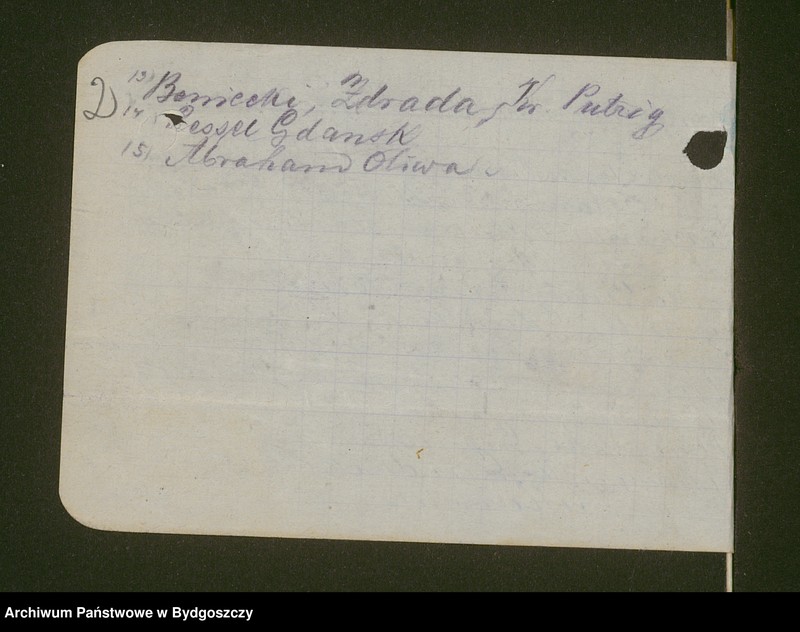 2)
13) Beniecki, Zdrada, Kr. Putzig
14) Gdansk
15) Abraham Oliwa
Archiwum Państwowe w Bydgoszczy